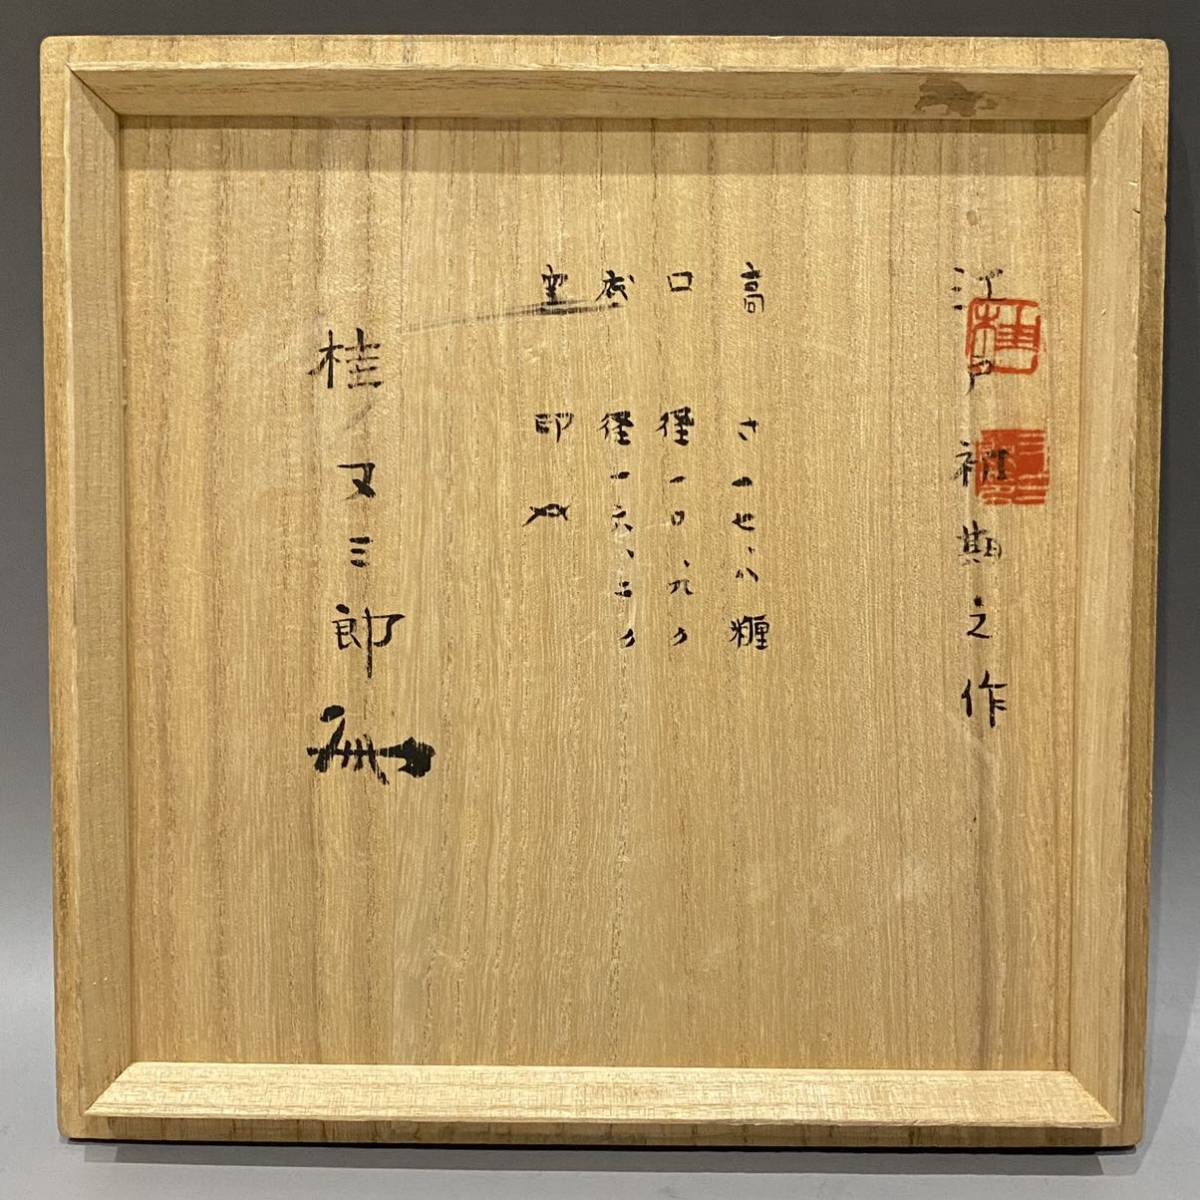 江戸初期之作
高さ一七、八糎
口径一〇、九〃
底径一六、二〃
窯印
桂又三郎
桂